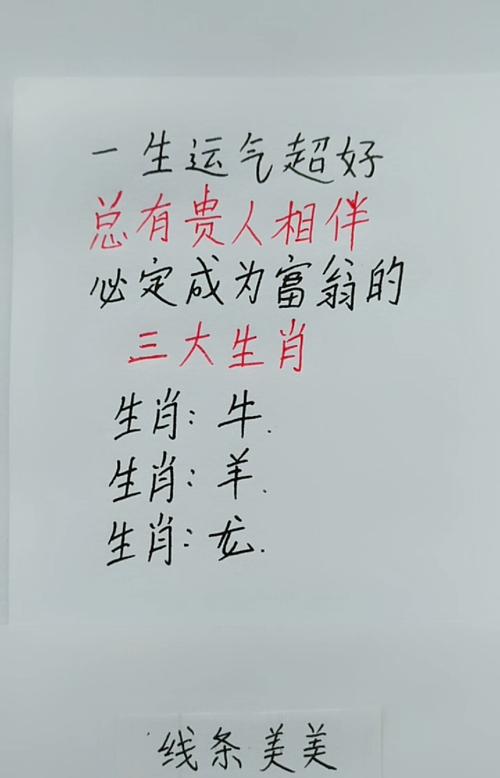 一生运气超好
总有贵人相伴
必定成为富翁的
三大生肖
生肖:牛.
生肖:羊.
生肖:龙.
线条美美